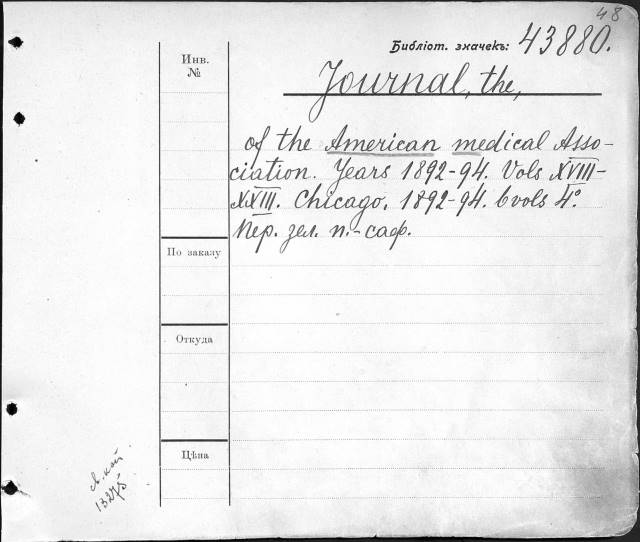 48
Библіот. значекъ: 43880.
Инв.
№
Journal, the,
of the American medical Asso-
ciation. Years 1892-94. Vols XVIII-
XXIII. Chicago, 1892-94. 6 vols 4°.
Пер. зел. п.-саф.
По заказу
Откуда
Цѣна
13275